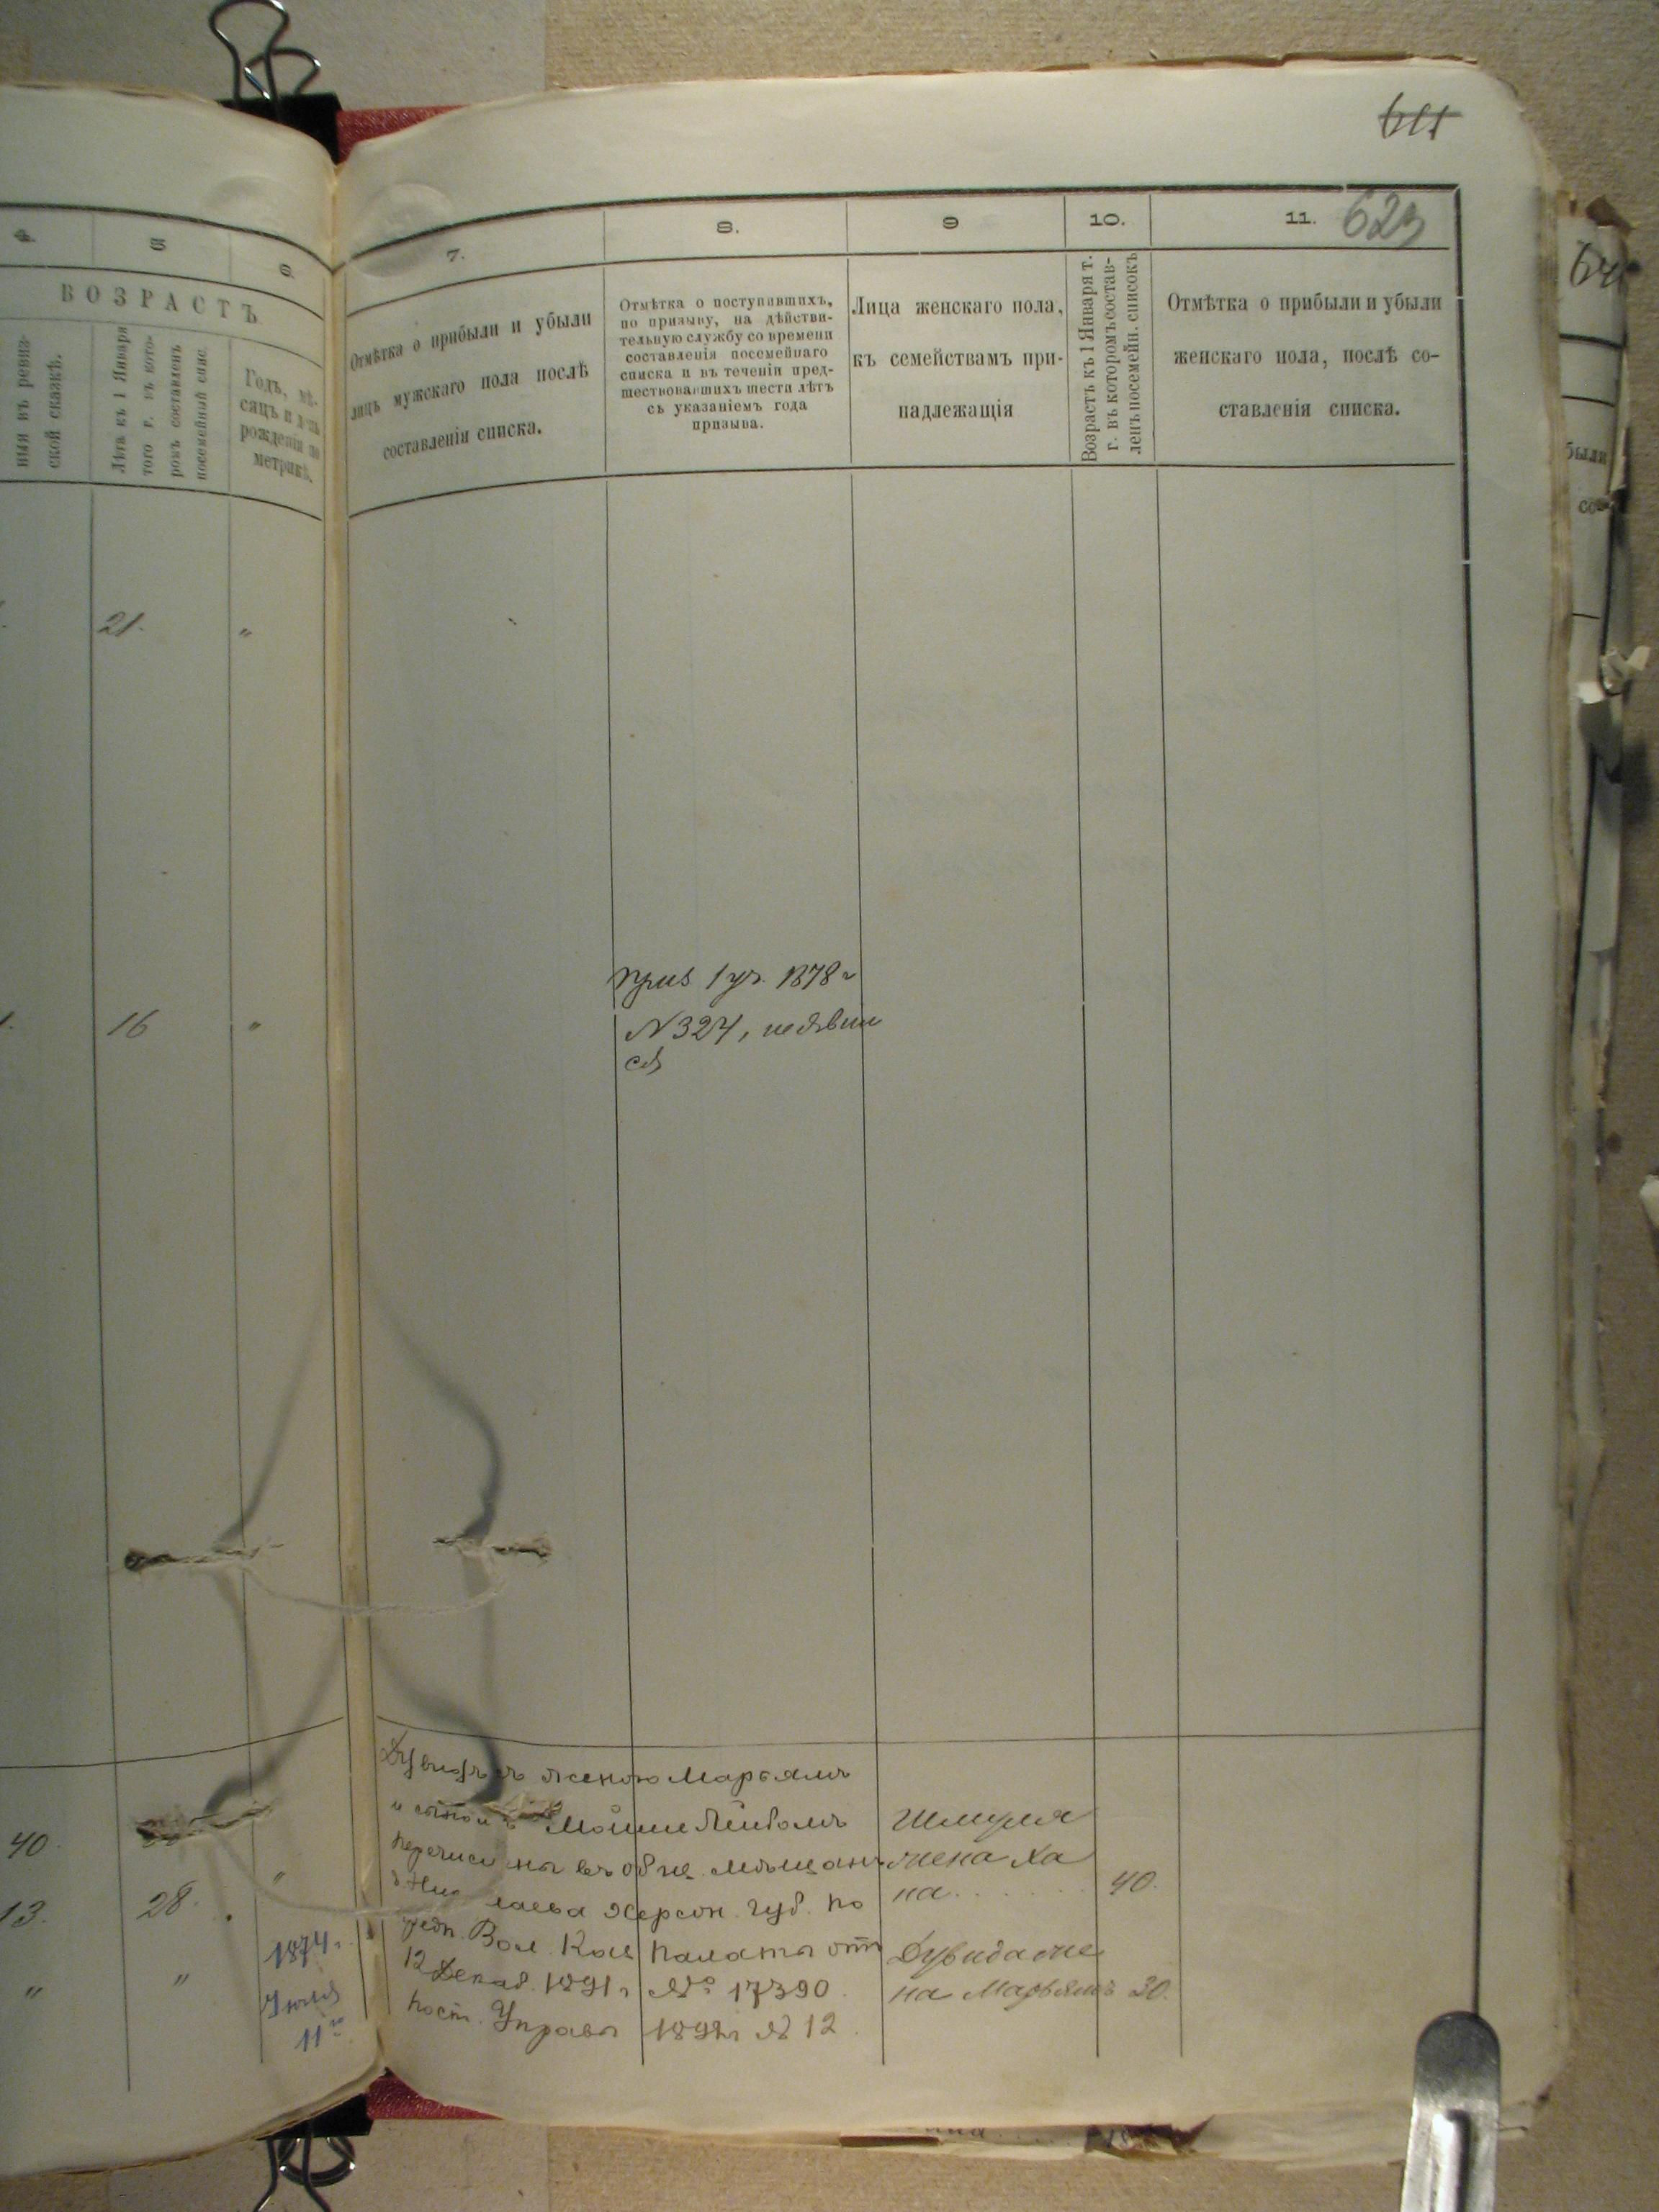 611
623
4.
5
6.
7.
8.
9
10.
11.
ВОЗРАСТЪ
ской сказкѣ.
Лѣта къ 1 Января
того г. въ кото-
ромъ составленъ
посемейный спис.
Годъ, мѣ-
сяцъ и день
рожденія по
метрикѣ.
Отмѣтка о прибыли и убыли
лицъ мужскаго пола послѣ
составленія списка.
Отмѣтка о поступившихъ,
по призыву, на дѣйстви-
тельную службу со времени
составленія посемейнаго
списка и въ теченіи пред-
шествовавшихъ шести лѣтъ
съ указаніемъ года
призыва.
Лица женскаго пола,
къ семействамъ при-
надлежащія
Возрастъ къ 1 Января т.
г. въ которомъ состав-
ленъ посемейн. списокъ
Отмѣтка о прибыли и убыли
женскаго пола, послѣ со-
ставленія списка.
21.
16
приз 1 уч. 1878 г
N 324, неявил
ся
40
13.
28.
1874 г.
Іюля
11го
Дувидъ съ женою Марьямъ
и сыномъ Мойше Лейбомъ
перечислены въ общ. мѣщанъ
Херсон. губ. по
Вол. Каз Палаты отъ
12 Декаб. 1891 г № 17390.
пост. Управы 1892 г № 12.
Шмуля
жена Ха
на 40.
Дувида же
на Марьямъ 30.